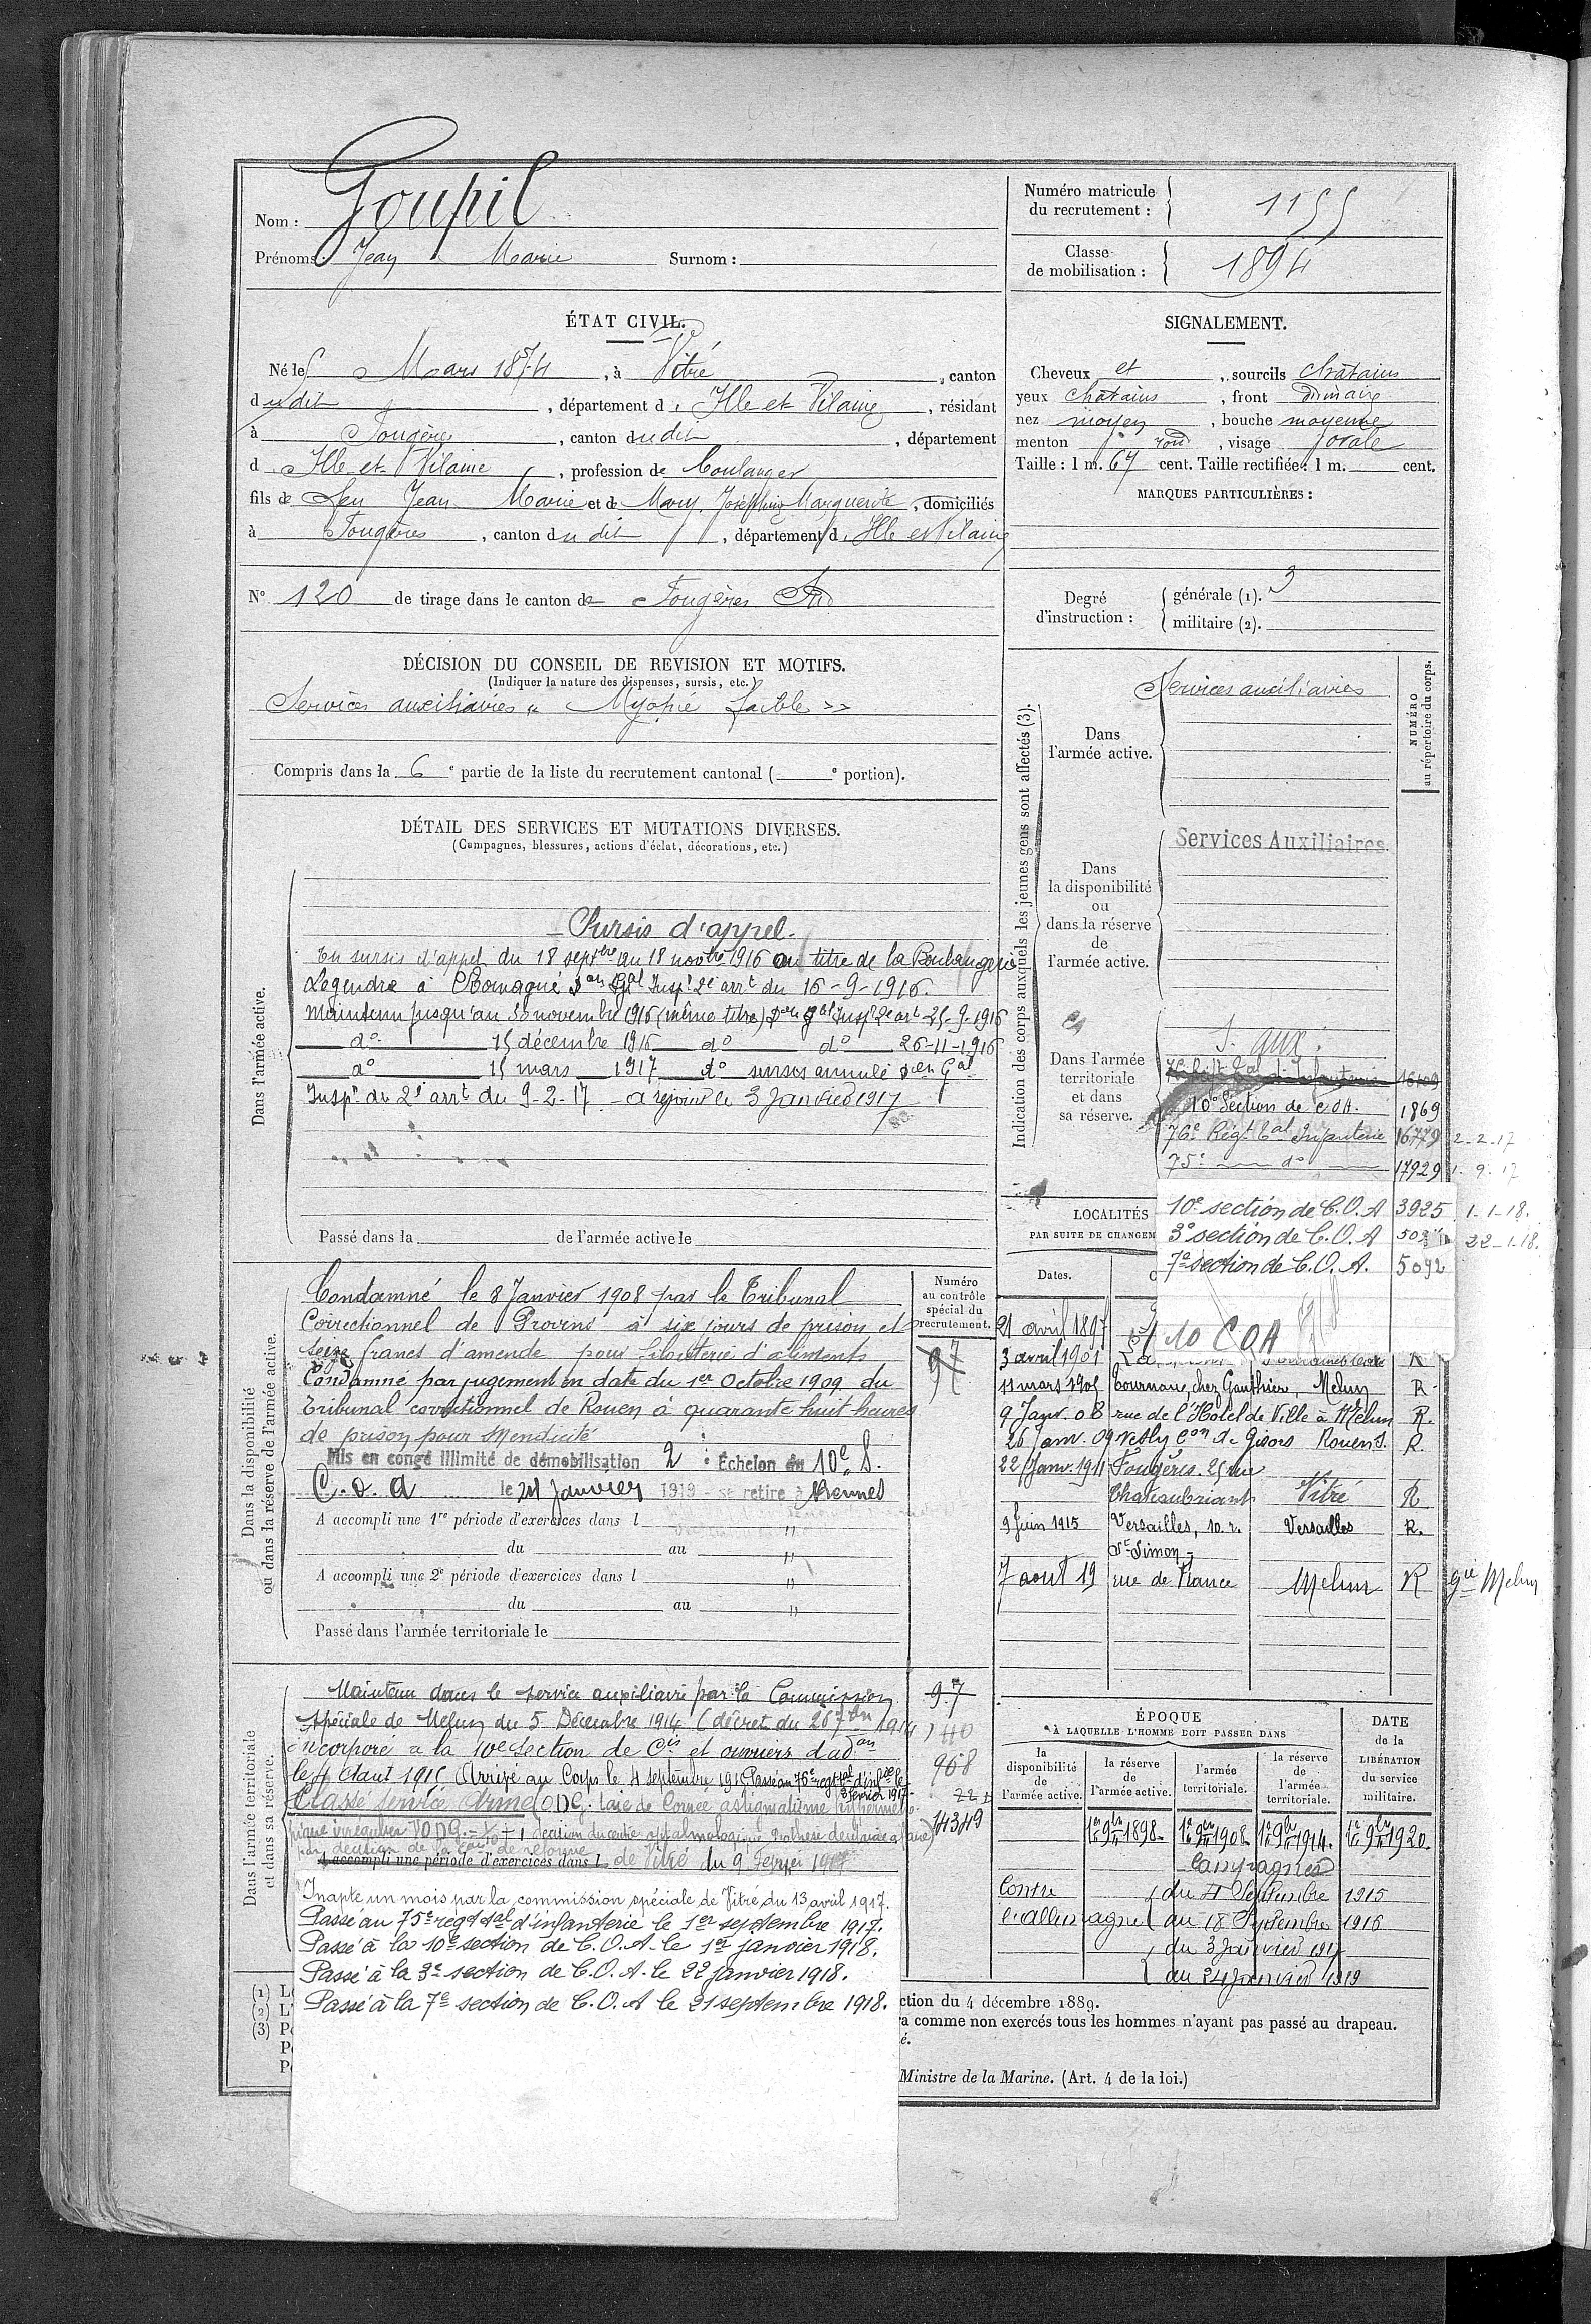 Nom : Goupil
Prénoms : Jean Marie Surnom :
Numéro matricule
du recrutement : 1155
Classe
de mobilisation : 1894
ÉTAT CIVIL.
Né le 5 Mars 1874, à Vitré, canton
dudit, département d'Ille et Vilaine, résidant
à Fougères, canton dudit, département
d'Ille et Vilaine, profession de boulanger
fils de feu Jean Marie et de Mary Joséphine Marguerite, domiciliés
à Fougères, canton dudit, département d'Ille et Vilaine
N° 120 de tirage dans le canton de Fougères Sud
SIGNALEMENT.
Cheveux et, sourcils châtains
yeux châtains, front ordinaire
nez moyen, bouche moyenne
menton rond, visage ovale
Taille : 1 m. 67 cent. Taille rectifiée : 1 m. cent.
MARQUES PARTICULIÈRES :
Degré
d'instruction :
générale (1). 3
militaire (2).
DÉCISION DU CONSEIL DE REVISION ET MOTIFS.
(Indiquer la nature des dispenses, sursis, etc.)
Services auxiliaires « Myopie faible »
Compris dans la 6e partie de la liste du recrutement cantonal ( e portion).
DÉTAIL DES SERVICES ET MUTATIONS DIVERSES.
(Campagnes, blessures, actions d'éclat, décorations, etc.)
Dans l'armée active.
Sursis d'appel.
En sursis d'appel du 18 septbre au 18 novbre 1916 au titre de la Boulangerie
Legendre à Romagné Don Gal Insp. 2e arrt du 16-9-1916.
Maintenu jusqu'au 30 novembre 1916 (même titre) Don Gal Insp 2e art 25-9-1916
do 15 décembre 1916 do do 26-11-1916
do 15 mars 1917 do sursis annulé Don Gal
Inspr du 2e arrt du 9-2-17 - a rejoint le 3 Janvier 1917
Passé dans la de l'armée active le
Indication des corps auxquels les jeunes gens sont affectés (3).
NUMÉRO
au répertoire du corps.
Dans
l'armée active.
Services auxiliaires
Dans
la disponibilité
ou
dans la réserve
de
l'armée active.
Services Auxiliaires.
Dans l'armée
territoriale
et dans
sa réserve.
S. aux.
10e Section de COA. 1869
76e Régt Tal Infanterie 16779 2-2-17
75e do 17929 1-9-17
10e section de C.O.A 3925 1-1-18.
3e section de C.O.A 22-1-18.
7e section de C.O.A. 5092
10 COA
LOCALITÉS
PAR SUITE DE CHANGEM
Dates.
21 avril 1897
3 avril 1901 R
11 mars 1905 Tournan, chez Gauthier, Melun R.
9 Janv. 08 rue de l'Hôtel de Ville à Melun R.
26 janv. 09 Vesly Con de Gisors Rouen S. R.
22 Janv. 1911 Fougères. 25 rue
Chateaubriant Vitré R
9 Juin 1915 Versailles, 10. r. Versailles R.
St Simon
7 aout 19 rue de France Melun R gie Melun
Dans la disponibilité
ou dans la réserve de l'armée active.
Numéro
au contrôle
spécial du
recrutement.
97
Condamné le 8 Janvier 1908 par le Tribunal
Correctionnel de Provins à six jours de prison et
seize francs d'amende pour filouterie d'aliments
Condamné par jugement en date du 1er Octobre 1909 du
Tribunal correctionnel de Rouen à quarante huit heures
de prison pour mendicité
Mis en congé illimité de démobilisation 2e Échelon du 10e S.
C.O.A le 24 Janvier 1919 - se retire à Rennes
A accompli une 1re période d'exercices dans l
du au
A accompli une 2e période d'exercices dans l
du au
Passé dans l'armée territoriale le
Dans l'armée territoriale
et dans sa réserve.
Maintenu dans le service auxiliaire par la Commission
spéciale de Melun du 5 Décembre 1914 (décret du 26 7bre 1914
incorporé à la 10e Section de Cis et ouvriers d'adon
le 4 Aout 1915 Arrivé au Corps le 4 septembre 1915 Passé au 76e regt tal d'infie le
2 février 1917
Classé service Armé ODG. taie de Cornée astigmatisme
décision du centre ophtalmologique
A accompli une période d'exercices dans l de Vitré du 9 Février 1917
97
140
968
14349
Inapte un mois par la commission spéciale de Vitré du 13 avril 1917.
Passé au 75e regt tal d'infanterie le 1er septembre 1917.
Passé à la 10e section de C.O.A. le 1er janvier 1918.
Passé à la 3e section de C.O.A. le 22 janvier 1918.
Passé à la 7e section de C.O.A le 21 septembre 1918.
ÉPOQUE
À LAQUELLE L'HOMME DOIT PASSER DANS
la
disponibilité
de
l'armée active.
la réserve
de
l'armée active.
l'armée
territoriale.
la réserve
de
l'armée
territoriale.
DATE
de la
LIBÉRATION
du service
militaire.
1er 9bre 1898. 1er 9bre 1908. 1er 9bre 1914. 1er 9bre 1920.
Campagnes
Contre du 4 Septembre 1915
l'allemagne au 18 Septembre 1916
du 3 janvier 1917
au 24 janvier 1919
(1) L
(2) L'
(3) P
ction du 4 décembre 1889.
a comme non exercés tous les hommes n'ayant pas passé au drapeau.
é.
Ministre de la Marine. (Art. 4 de la loi.)